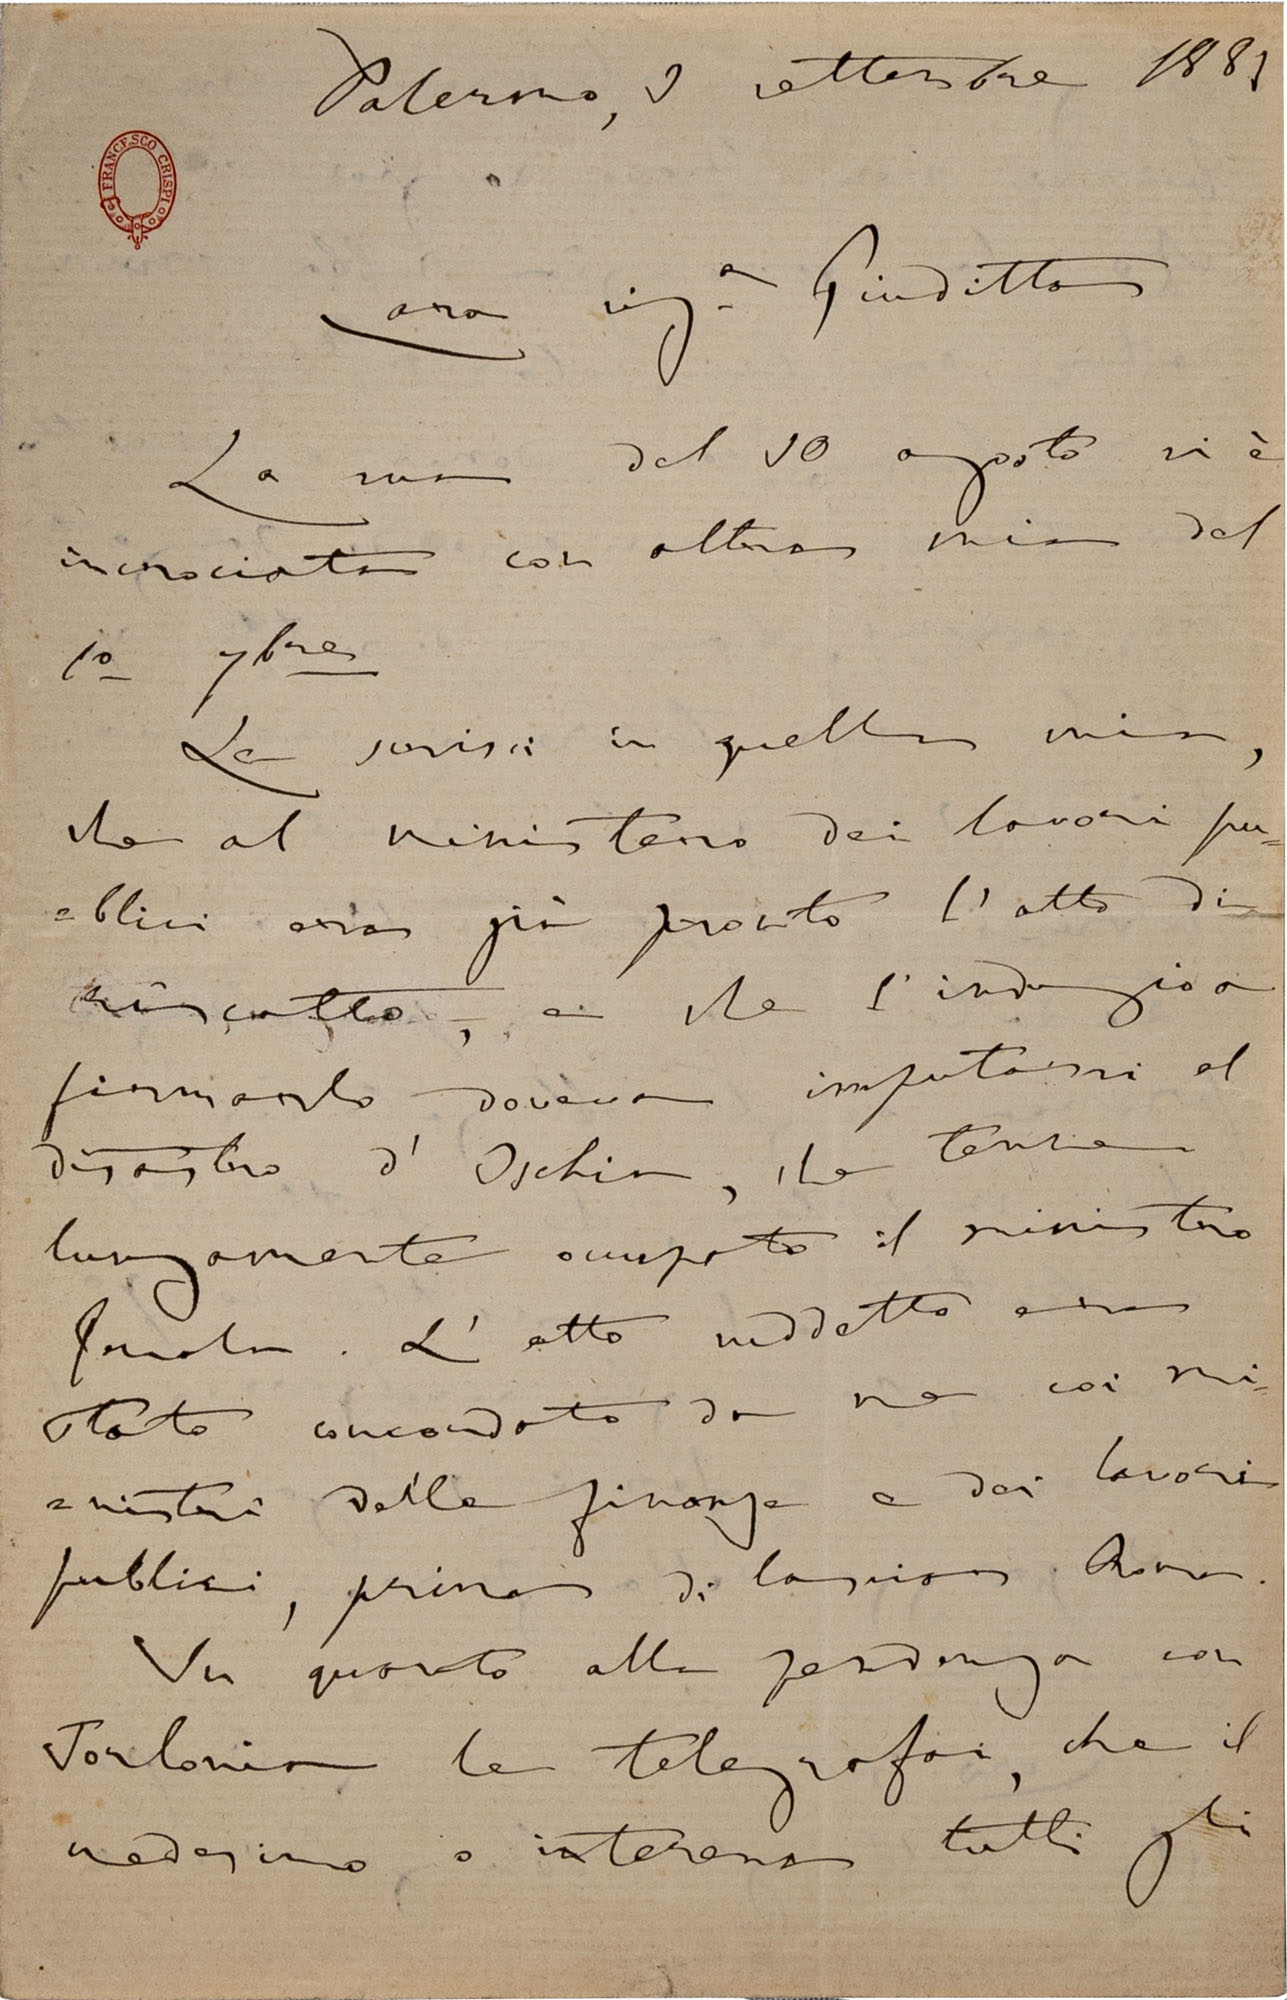 FRANCESCO CRISPI
Palermo, 3 settembre 1883
Cara sig.a Giuditta
La sua del 30 agosto si è
incrociata con altra mia del
1o 7bre
Le scrissi in quella mia,
che al ministero dei lavori pu=
=blici era già pronto l'atto di
riscatto, e che l'indugio a
firmarlo doveva imputarsi al
disastro d'Ischia, che tenne
lungamente occupato il ministro
Genala. L'atto suddetto era
stato concordato da me coi mi=
=nisteri delle finanze e dei lavori
publici, prima di lasciar Roma.
In quanto alla pendenza con
Torlonia le telegrafai, che il
medesimo o interessa tutti gli